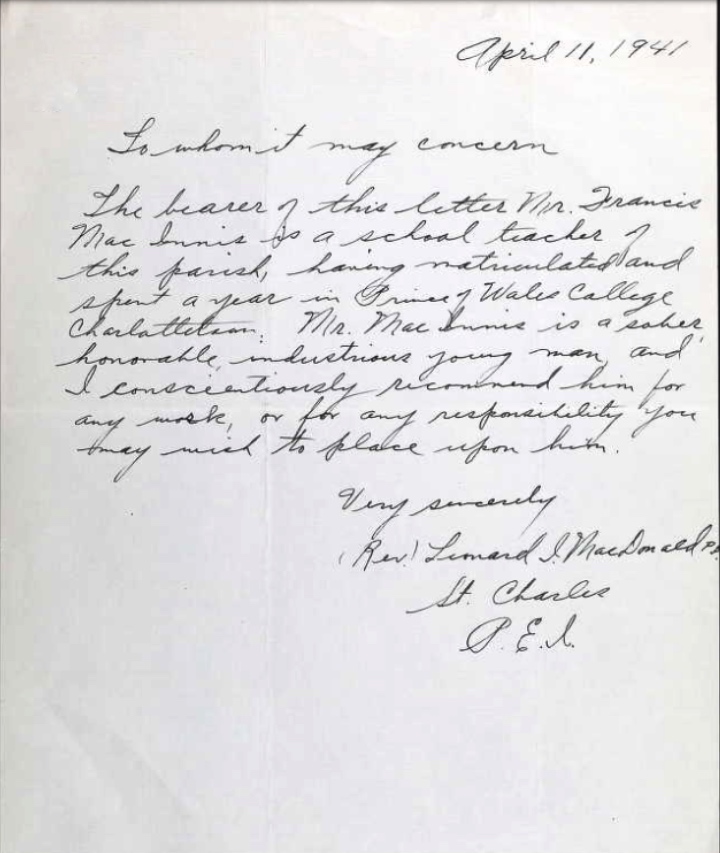 April 11, 1941
To whom it may concern
The bearer of this letter Mr. Francis
Mac Innis is a school teacher of
this parish, having matriculated and
spent a year in Prince of Wales College
Charlottetown. Mr. Mac Innis is a sober,
honorable, industrious young man, and
I conscientiously recommend him for
any work, or for any responsibility you
may wish to place upon him.
Very sincerely
(Rev.) Leonard J. MacDonald P.P.
St. Charles
P.E.I.